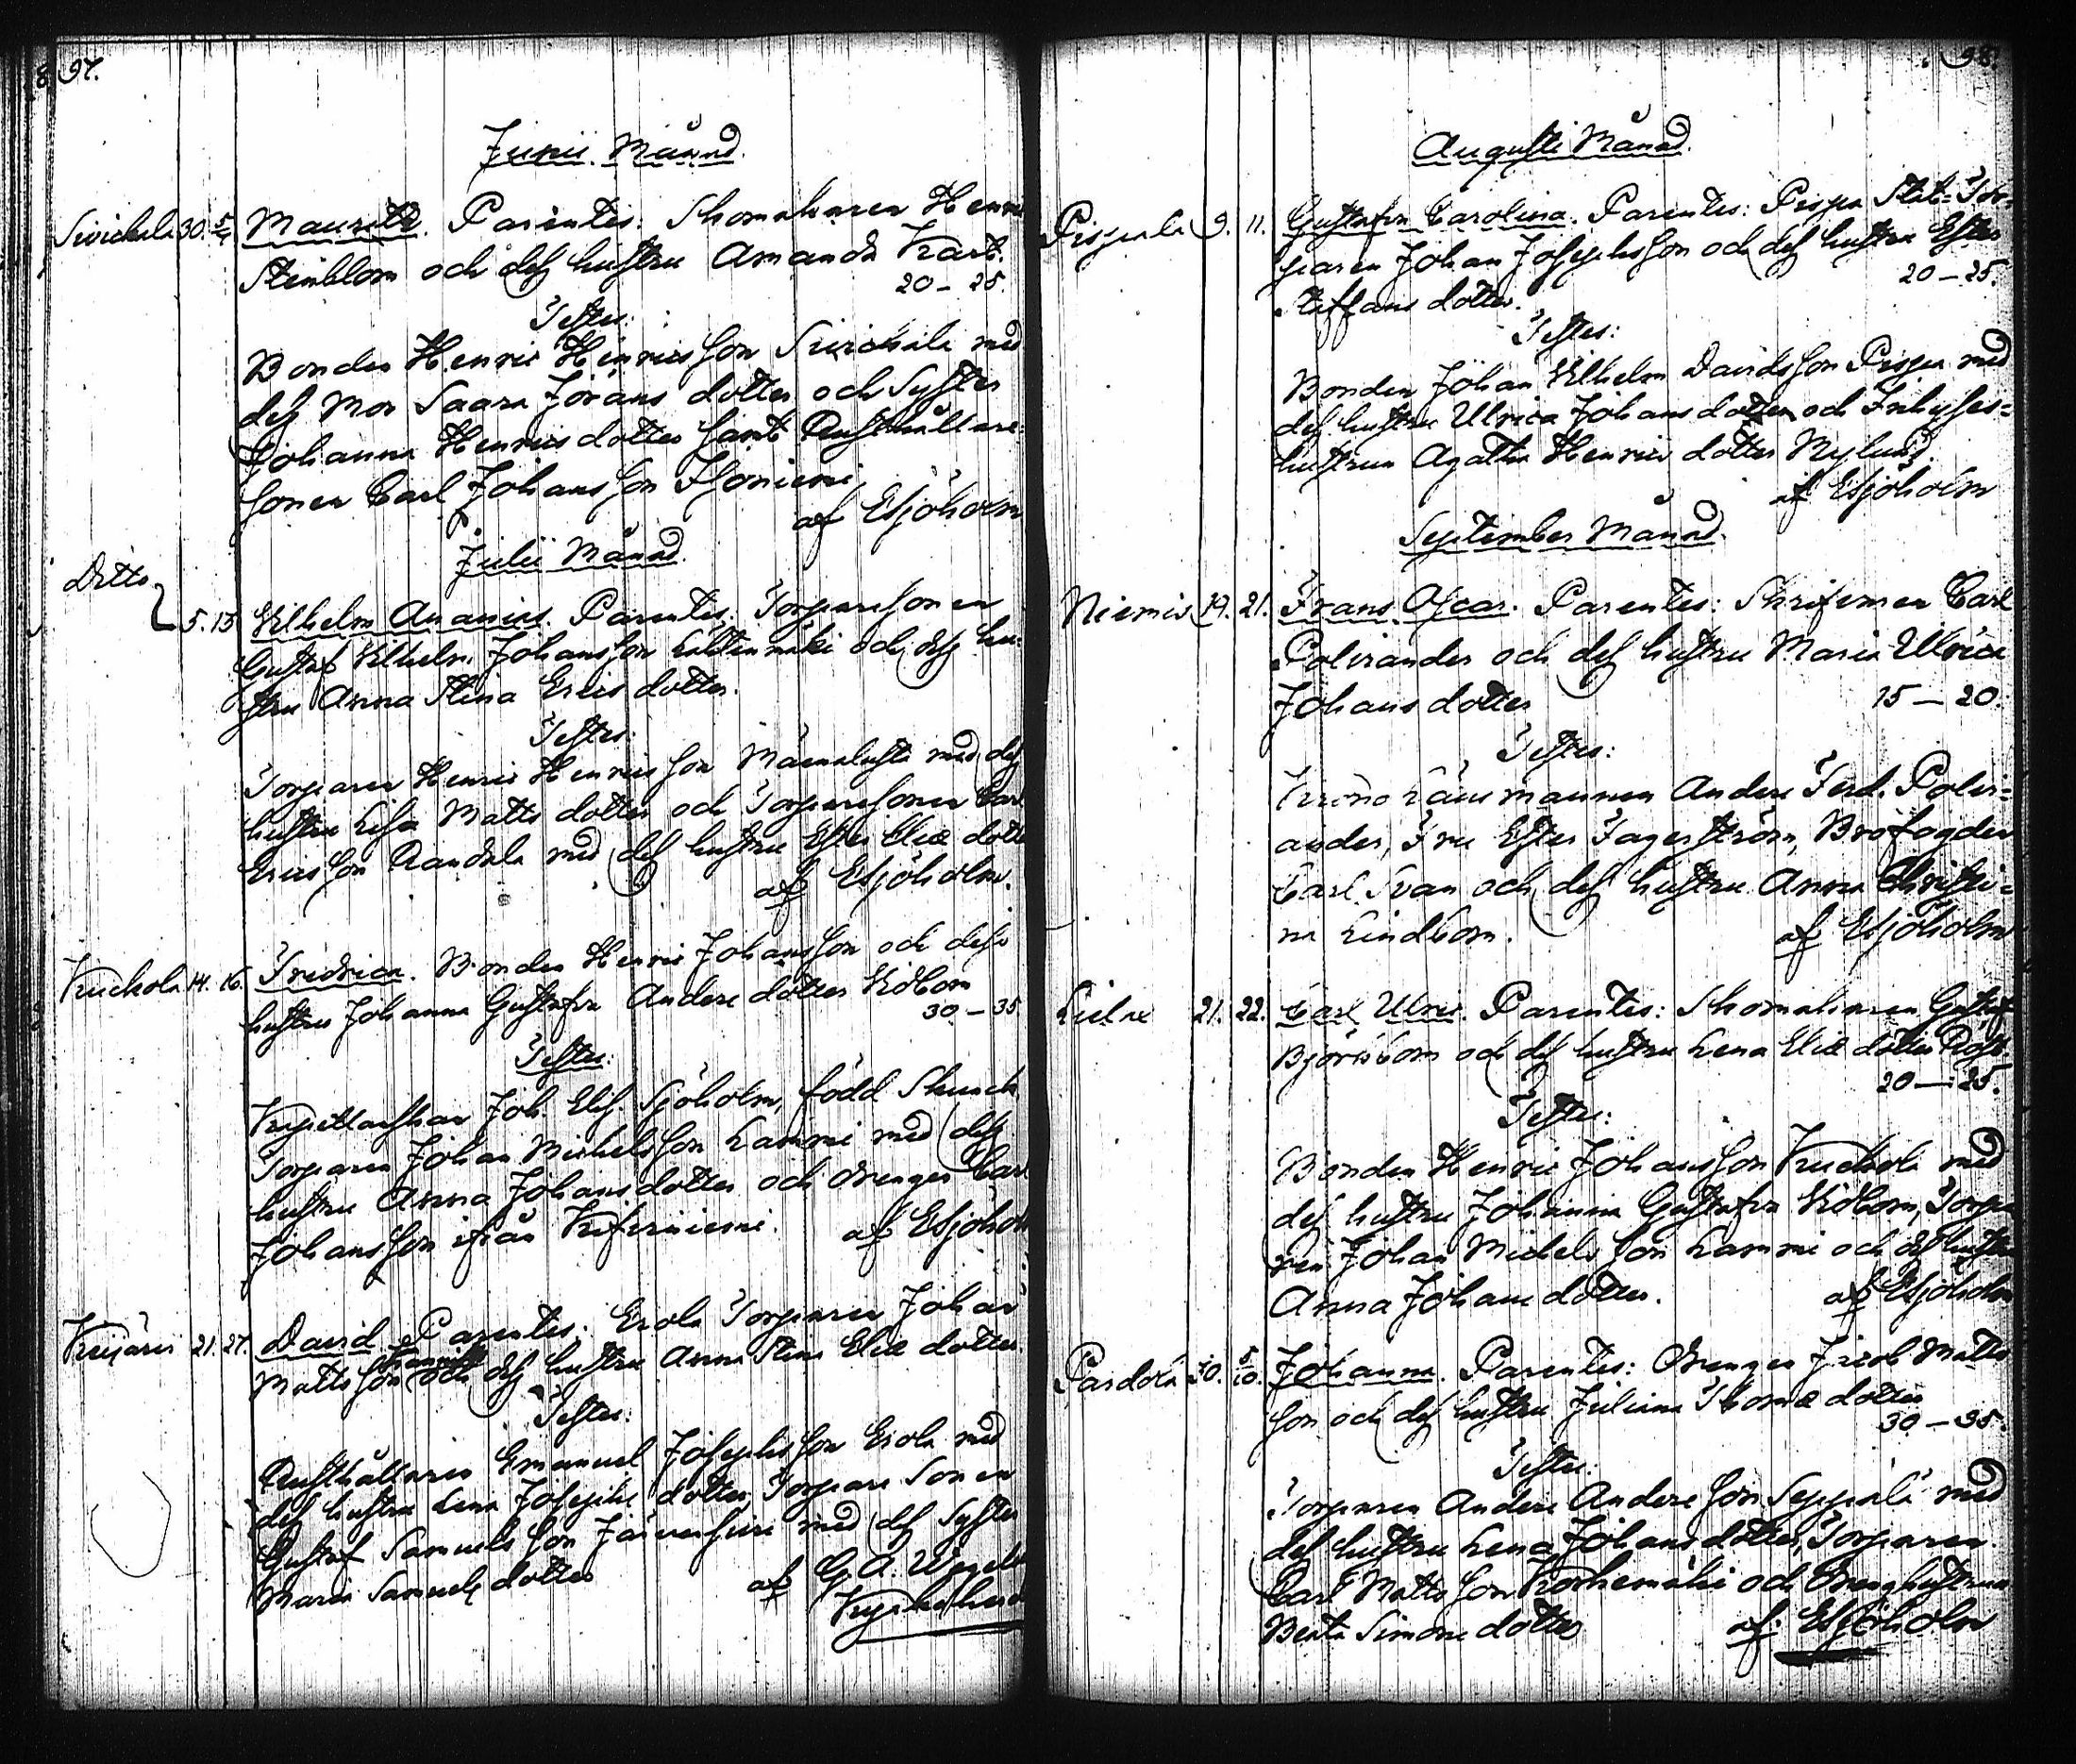 97.
Junii Månad.
30. 5/7 Mauritz. Parentes: Skomakaren Henric
Stenblom och dess hustru Amanda Karl.
20 – 25.
Testes:
Bonden Henric Henricsson med
dess Mor Saara Jörans dotter och Syster
Johanna Henrics dotter samt Rusthållare
sonen Carl Johansson Isoniemi
af ESjöholm
Julii Månad.
Ditto
5. 15 Vilhelm Ananias. Parentes: Torparesonen
Gustaf Vilhelm Johansson och dess hu-
stru Anna Stina Erics dotter.
Testes:
Torparen Henric Henricsson med dess
hustru Lisa Matts dotter och Torparesonen Carl
Ericsson Randala med dess hustru Ester Eliæ dotter
af ESjöholm.
Kuckola 14. 16. Fredrica. Bonden Henric Johansson och dess
hustru Johanna Gustafva Anders dotter Vidbom
30 – 35
Testes:
Kapellanskan Joh. Elis. Sjöholm, född Skunck
Torparen Johan Michelsson Lammi med dess
hustru Anna Johans dotter och drengen Carl
Johansson ifrån
af ESjöholm
21. 27. David Parentes: Erola Torparen Johan
Mattsson och dess hustru Anna Stina Eliæ dotter.
Testes:
Rusthållaren Emanuel Josephsson Erola med
dess hustru Lena Josephs dotter, Torpare Sonen
Gustaf Samuelsson med dess Syster
Maria Samuels dotter
af G. A.
98.
Augusti Månad.
Pispala 9. 11. Gustafva Carolina. Parentes: Pispa Stat-Tor-
paren Johan Josephsson och dess hustru Ester
20 – 25.
Steffans dotter.
Testes:
Bonden Johan Vilhelm Davidsson Pispa med
dess hustru Ulrica Johans dotter och Inhyses-
hustrun Agatha Henrics dotter Nylund.
af ESjöholm
September Månad.
Niemis 19. 21. Frans Oscar. Parentes: Skrifvaren Carl
Polviander och dess hustru Maria Ulrica
Johans dotter 15 – 20.
Testes:
Krono Länsmannen Anders Ferd. Polvi-
ander, Fru Ester Fagerström, Brofogden
Carl Svan och dess hustru Anna Christi-
na Lindbom. af ESjöholm
21. 22. Carl Ulric. Parentes: Skomakaren Gustaf
Björkbom och dess hustru Lena Eliæ dotter
20 – 25.
Testes:
Bonden Henric Johansson Kuckola med
dess hustru Johanna Gustafva Vidbom, Torpa-
ren Johan Michelsson Lammi och dess hustru
Anna Johans dotter. af ESjöholm
30. 5/10. Johanna. Parentes: Drengen Jacob Matts
son och dess hustru Juliana Thomæ dotter
30 – 35.
Testes:
Torparen Anders Andersson Seppälä med
dess hustru Lena Johans dotter, Torparen
Carl Mattsson och Drenghustrun
Beata Simons dotter af ESjöholm